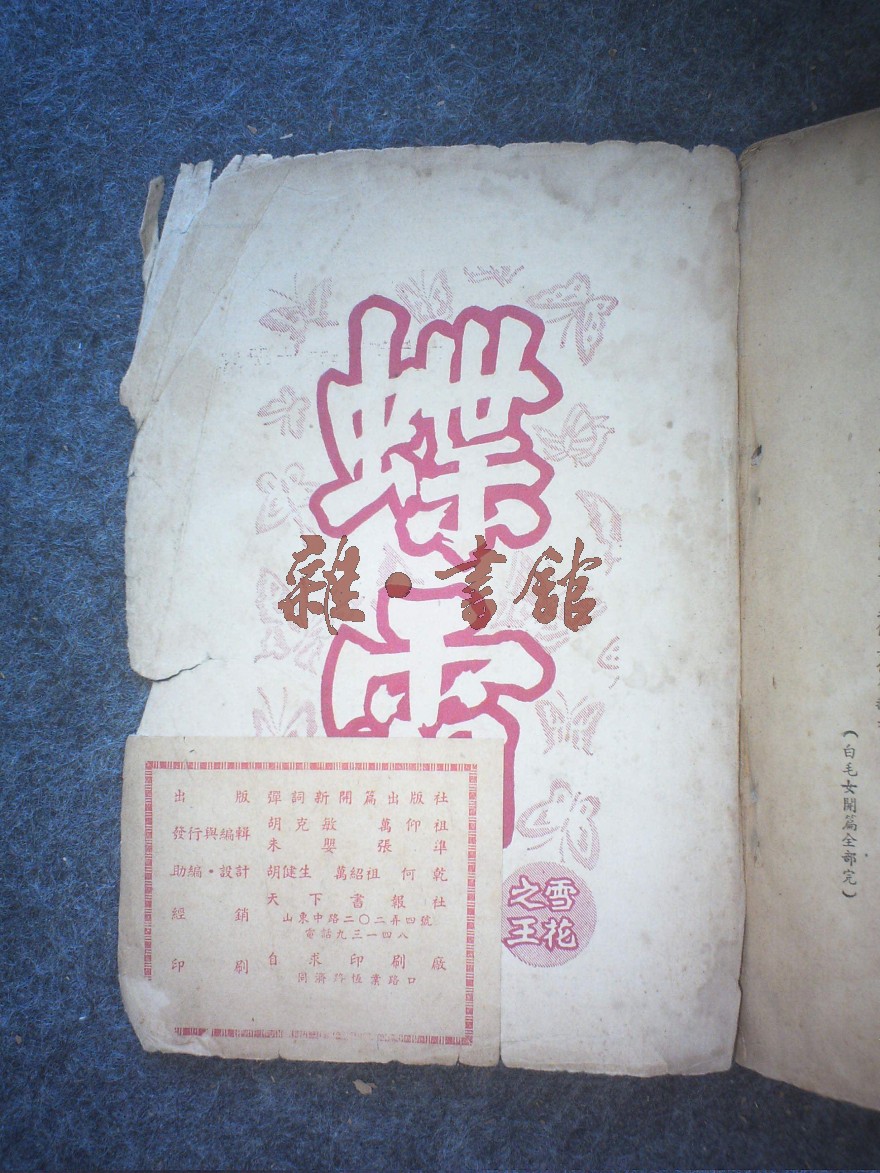 蝶霜
雜·書館
雪花
之王
出版 彈詞新開篇出版社
發行與編輯 胡克敏 萬仰祖
朱嬰 張準
助編·設計 胡健生 萬紹祖 何乾
經銷 天下書報社
山東中路二〇二弄四號
電話九三一四八
印刷 自求印刷廠
同濟路恆業路口
（白毛女開篇全部完）